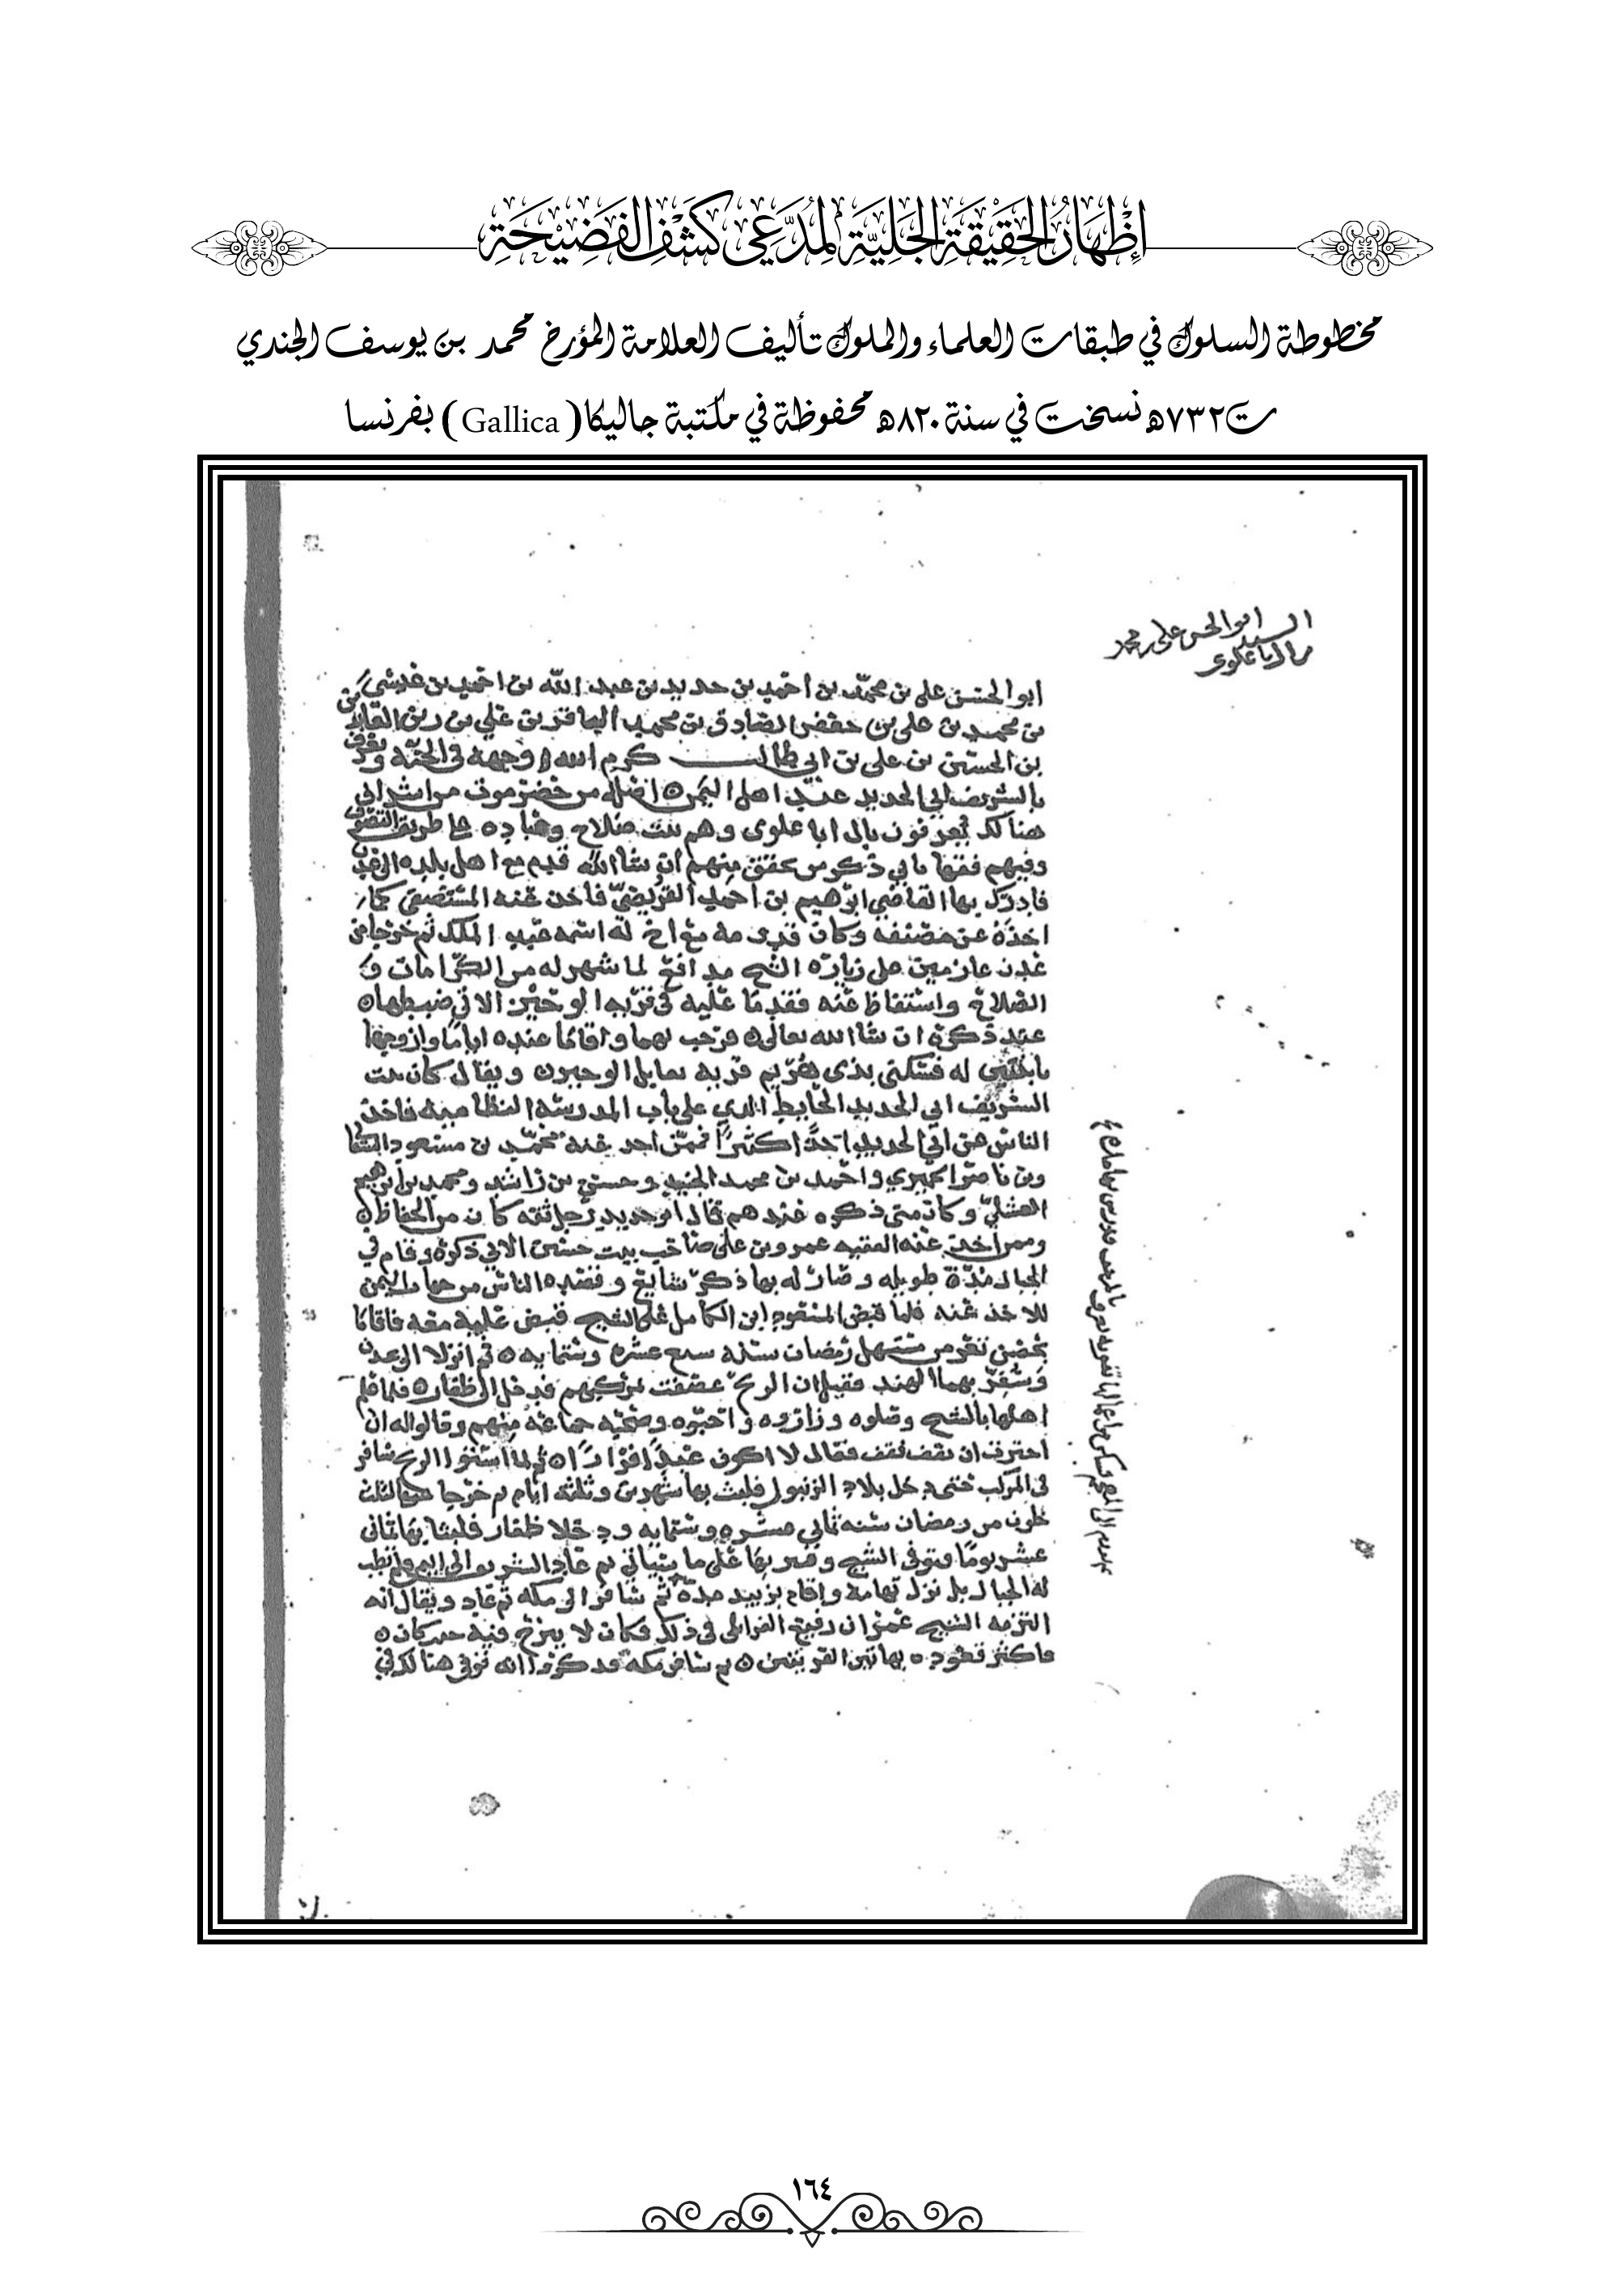 إِظْهَارُ الحَقِيقَةِ الجَلِيَّةِ لِمُدَّعِي كَشْفِ الفَضِيْحَةِ
مخطوطة السلوك في طبقات العلماء والملوك تأليف العلامة المؤرخ محمد بن يوسف الجندي
ت٧٣٢هـ نسخت في سنة ٨٢٠هـ محفوظة في مكتبة جاليكا (Gallica) بفرنسا
السيد ابو الحسن على بن محمد
من ال ابا علوى
أبو الحسن علي بن محمّد بن احمد بن حديد بن عبد الله بن احمد بن عيسى
بن محمد بن علي بن جعفر الصادق بن محمد الباقر بن علي بن زين العابدين
بن الحسين بن علي بن ابي طالب كرم الله وجهه في الجنة ويعرف
بالشريف ابي الحديد عند اهل اليمن اصله من حضرموت من اشراف
هنالك يعرفون بال ابا علوى وهم بيت صلاح وعباده على طريق التصوف
وفيهم فقها ياتي ذكر من تحقق منهم ان شا الله قدم مع اهل بلده الى عدن
فادرك بها القاضي ابرهيم بن احمد القريضي فاخذ عنه المستصفى كما
اخذه عن مصنفه وكان قدومه مع اخ له اسمه عبد الملك ثم خرجا من
عدن عازمين على زياره الشيخ مدافع لما شهر له من الكرامات و
الصلاح واستفاظ عنه فقدما عليه في قريه الوحيز الاتي ضبطها
عند ذكره ان شا الله تعالى فرحب بهما واقاما عنده اياما وازوجهما
بابنتين له فسكنى بذى هزيم قريه تقابل الوحيز ويقال كان بيت
الشريف ابي الحديد الحايط الذي على باب المدرسه النظاميه فاخذ
الناس عن ابي الحديد اخذا كثيرًا فممن اخذ عنه محمّد بن مسعود السفالي
وبن ناصر الحميري واحمد بن محمد الجنيد وحسن بن راشد ومحمد بن ابرهيم
الفشلي وكان متى ذكره عندهم قال ابو حديد رجل ثقه كان من الحفاظ
وممن اخذ عنه الفقيه عمرو بن على صاحب بيت حسين الاتي ذكره وقام في
الجبال مدة طويله وصار له بها ذكر شايع وقصده الناس من جهات اليمن
للاخذ عنه فلما قبض المسعود ابن الكامل على الشيخ قبض عليه معه فاقاما
بحصن تعز من مستهل رمضان سنه سبع عشره وستمايه ثم انزلا الى عدن
وسُفِّر بهما الهند فقيل ان الريح عصفت بمركبهم فدخل الى ظفار فلما علم
اهلها بالشيخ وصلوه وزاروه واحبوه وصحبه جماعه منهم وقالوا له ان
احببت ان تقف فقف فقال لا اكون عبدًا فرارًا ثم لما استوا الريح سافر
في المركب حتى دخل بلاد الرنبول فلبث بها شهرين وثلثه ايام ثم خرجا عنها لثلاث
خلون من رمضان سنه ثماني عشره وستمايه ودخلا ظفار فلبثا بها ثماني
عشر يوما وتوفى الشيخ وقبر بها على ما سياتي ثم عاد الشريف الى اليمن ولم تطب
له الجبال بل نزل تهامة واقام بزبيد مدّه ثم سافر الى مكه ثم عاد ويقال انه
التزمه الشيخ عمران رفيع القرابلى في ذلك فكان لا يبرح
واكثر قعوده بهاتين القريتين ثم سافر مكه فذكروا انه توفى هنالك في
١٦٤